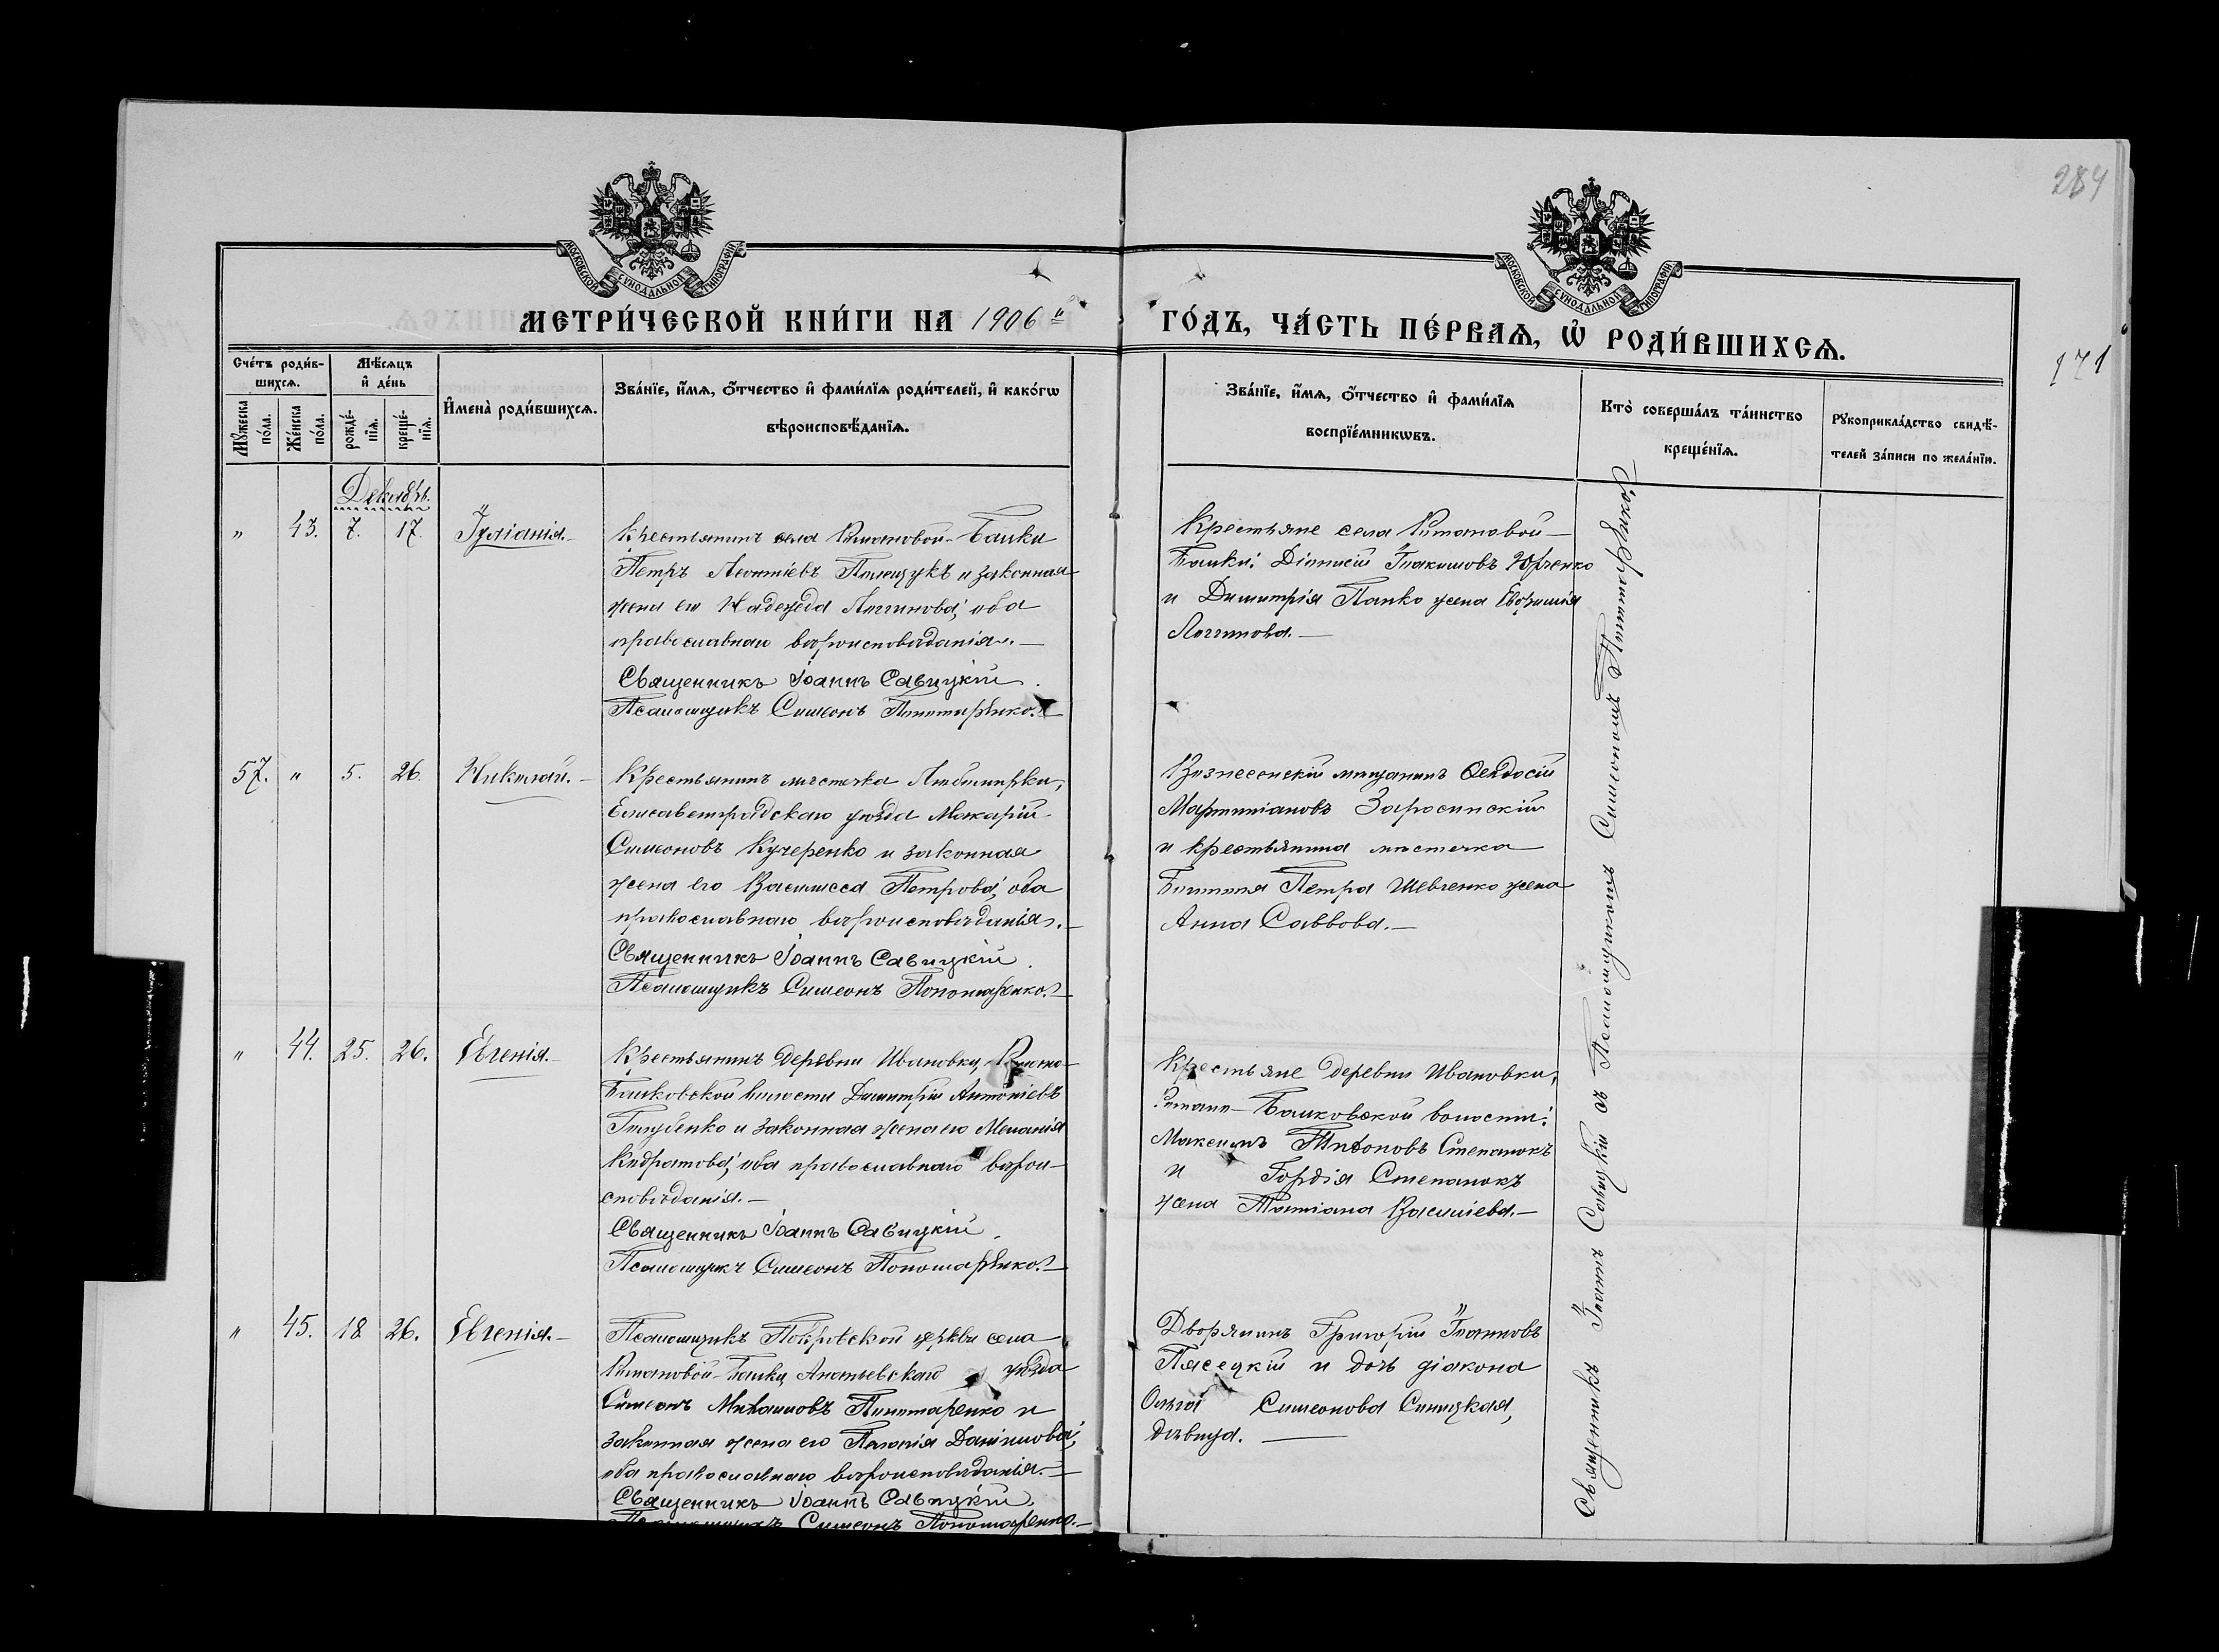 284
171
МОСКОВСКОЙ СѴНОДАЛЬНОЙ ТИПОГРАФІИ
МОСКОВСКОЙ СѴНОДАЛЬНОЙ ТИПОГРАФІИ
МЕТРИ́ЧЕСКОЙ КНИ́ГИ НА 1906 й ГО́ДЪ, ЧА́СТЬ ПЕ́РВАѦ, Ѡ҆ РОДИ́ВШИХСѦ.
Сче́тъ роди́в-
шихсѧ.
Мѣ́сѧцъ
и҆ де́нь
Мꙋ́жеска
по́ла.
Же́нска
по́ла.
рожде́-
нїѧ.
креще́-
нїѧ.
И҆мена̀ роди́вшихсѧ.
Зва́нїе, и҆́мѧ, ѻ҆́тчество и҆ фами́лїѧ роди́телей, и҆ како́гѡ
вѣроисповѣ́данїѧ.
Зва́нїе, и҆́мѧ, ѻ҆́тчество и҆ фами́лїѧ
воспрїе́мникѡвъ.
Кто̀ соверша́лъ та́инство
креще́нїѧ.
Рꙋкоприкла́дство свидѣ́-
телей за́писи по жела́нїю.
Декабрь.
" 43. 7. 17. Іуліанія.
Крестьянинъ села Романовой-Балки
Петръ Леонтіевъ Полещукъ и законная
жена его Надежда Логгинова, оба
православнаго вѣроисповѣданія.
Священникъ Іоаннъ Савицкій.
Псаломщикъ Симеонъ Пономаренко.
Крестьяне села Романовой
Балки: Діонисій Іоакимовъ Юрченко
и Димитрія Панко жена Евфимія
Логгинова.
57. " 5. 26. Николай.
Крестьянинъ мѣстечка Любомирки,
Елисаветградскаго уѣзда Макарій
Симеоновъ Кучеренко и законная
жена его Василисса Петрова, оба
православнаго вѣроисповѣданія.
Священникъ Іоаннъ Савицкій.
Псаломщикъ Симеонъ Пономаренко.
Вознесенскій мѣщанинъ Ѳеодосій
Мартиніановъ Заросинскій
и крестьянина мѣстечка
Петра Шевченко жена
Анна Саввова.
" 44. 25. 26. Евгенія.
Крестьянинъ деревни Ивановки, Романо-
Балковской волости Димитрій Антоніевъ
Голубенко и законная жена его Меланія
Кодратова, оба православнаго вѣрои-
сповѣданія.
Священникъ Іоаннъ Савицкій.
Псаломщикъ Симеонъ Пономаренко.
Крестьяне деревни Ивановки,
Романо-Балковской волости:
Максимъ Степанокъ
и Гордія Степанокъ
жена Татіана Василіева.
" 45. 18. 26. Евгенія.
Псаломщикъ Покровской церкви села
Романовой-Балки, Ананьевскаго уѣзда
Симеонъ Михаиловъ Пономаренко и
законная жена его Пелагія Даніилова,
оба православнаго вѣроисповѣданія.
Священникъ Іоаннъ Савицкій.
Псаломщикъ Симеонъ Пономаренко.
Дворянинъ Григорій Іоанновъ
Пясецкій и дочь діакона
Ольга Симеонова Синицкая,
дѣвица.
Священникъ Іоаннъ Савицкій съ Псаломщикомъ Симеономъ Пономаренко.